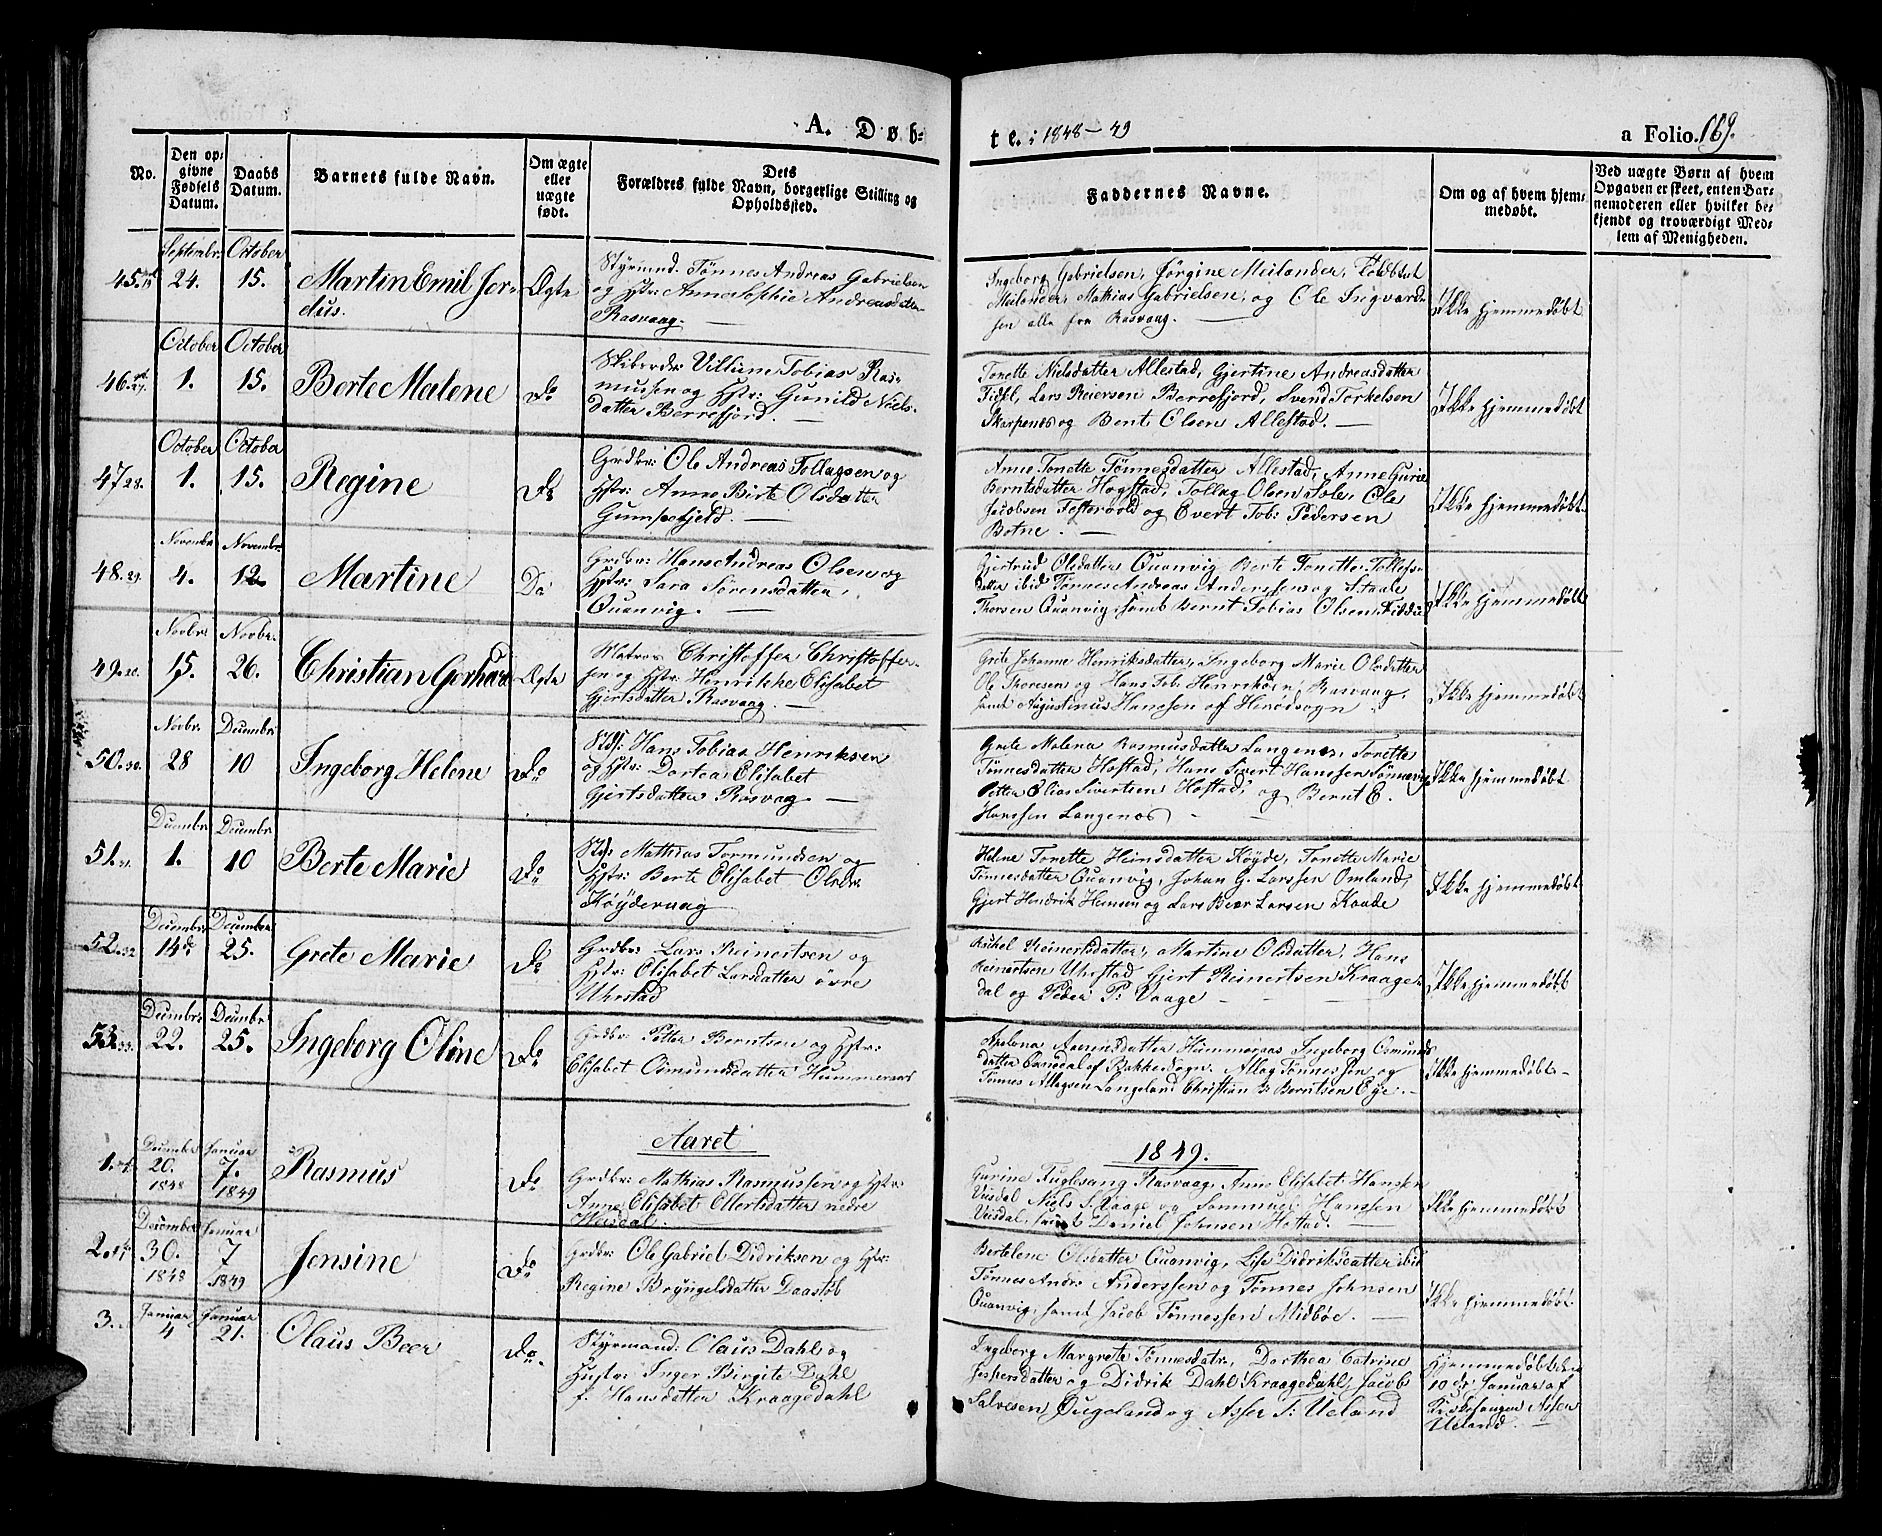 A. Døb-
te. i 1848-49
a Folio 169.
No.
Den opgivne Fødsels Datum.
Daabs Datum.
Barnets fulde Navn.
Om ægte eller uægte født.
Dets Forældres fulde Navn, borgerlige Stilling og Opholdssted.
Faddernes Navne.
Om og af hvem hjemmedøbt.
Ved uægte Børn af hvem Opgaven er skeet, enten Barnemoderen eller hvilket bekjendt og troværdigt Medlem af Menigheden.
45. Septembr 24. October 15.
Martin Emil Jor-
dus.
Ægte
Styrmd. Tønnes Andreas Gabrielsen
og Hstr: Anne Sophie Andreasdatter
Rasvaag. —
Ingeborg Gabrielsen, Jørgine Meilander,
Meilander, Mathias Gabrielsen, og Ole Ingvard-
sen alle fra Rasvaag. —
Ikke hjemmedøbt
46. 27. October 1. October 15.
Berte Malene
Do
Villum Tobias Ras-
musen og Hstr: Gunild Niels-
datter Berrefjord. —
Tonette Nielsdatter Allestad, Gjertine Andreasdatter
Lars Reiersen Berrefjord, Svend Torkelsen
Skarpenes og Bent Olsen Allestad. —
Ikke hjemmedøbt
47 28. October 1. October 15.
Regine
Do
Grdbr: Ole Andreas Tollagsen og
Hstr: Anne Birte Olsdatter
Gumpefjeld. —
Anne Tonette Tønnesdatter Allestad, Anne Gurie
Berntsdatter Hogstad, Tollag Olsen Sole, Ole
Jacobsen Festervold og Evert Tob: Pedersen
Botne. —
Ikke hjemmedøbt
48. 29. Novembr 4. Novembr. 12.
Martine
Do
Grdbr: Hans Andreas Olsen og
Hstr: Sara Sørensdatter,
Quanvig. —
Gjertrud Olsdatter Quanvig Berte Tonette Tollefs-
datter ibid Tønnes Andreas Anderssen og Staale
Thorsen Quanvig, samt Bernt Tobias Olsen
Ikke hjemmedøbt
49. Novbr: 15. Novbr: 26.
Christian Gerhard
Ægte
Matros Christoffer Christoffer-
sen og Hstr: Henrikke Elisabet
Gjertsdatter Rasvaag. —
Grete Johanne Henriksdatter, Ingeborg Marie Olsdatter
Ole Thoresen og Hans Tob: Henriksen, Rasvaag,
samt Augustinus Hanssen af
Ikke hjemmedøbt
50. 30. Novbr: 28 Decembr: 10
Ingeborg Helene
Do
Hans Tobias Henriksen
og Hstr: Dortea Elisabet
Gjertsdatter Rasvag —
Grete Malena Rasmusdatter Langenes, Tonette
Tønnesdatter Høstad, Hans Sivert Hanssen
Petter Elias Sivertsen Høstad, og Bernt E.
Hanssen Langenes
Ikke hjemmedøbt
51. 31. Decembr 1. Decembr 10
Berte Marie
Do
Mathias Tormundsen og
Hstr: Berte Elisabet Olsdr.
Køydevaag
Helene Tonette Heinsdatter Køyde, Tonette Marie
Tønnesdatter Quanvig, Johan G. Larssen Omland,
Gjert Hendrik Heinsen og Lars Beer Larsen Kaade
Ikke hjemmedøbt
52. 32 Decembr: 14de Decembr 25.
Grete Marie
Do
Grdbr: Lars Reinertsen og
Hstr: Elisabet Larsdatter övre
Uhrstad
Rakel Reinertsdatter, Martine Olsdatter, Hans
Reinertsen Uhrstad Gjert Reinertsen Kraage-
dal og Peder P: Vaage — —
Ikke hjemmedøbt
53 33. Decembr: 22. Decembr 25.
Ingeborg Oline
Do
Grdbr: Petter Berntsen og Hstr:
Elisabet Osmundsdatter Hummeraas
Apelona Aamusdatter Hummeraas Ingeborg Osmunds-
datter af Bakke Sogn. Allag Tønnessen og
Tønnes Allagsen Langeland Christian B: Berntsen Eye. —
Ikke hjemmedøbt —
Aaret
1849.
1. Decembr 20. 1848 Januar 7. 1849
Rasmus
Do
Grdbr: Mathias Rasmussen og Hstr:
Anne Elisabet Ollertsdatter nedre
Veisdal.
Gurine Fuglesang Rasvaag, Anne Elisabet Hansen
Veisdal Niels S. Vaage og Sammuel Hanssen
Veisdal, samt Daniel Johnsen Høstad. —
Ikke hjemmedøbt
2. Decembr 30. 1848 Januar 7 1849
Jensine
Do
Grdbr: Ole Gabriel Didriksen og Hstr:
Regine Bryngelsdatter Daastøl
Bertelene Olsdatter Quanvig, Lise Didriksdatter ibid
Tønnes Andr: Anderssen og Tønnes Johnsen
Quanvig, samt Jacob Tønnessen Midbøe. —
Ikke hjemmedøbt
3. Januar 4 Januar 21.
Olaus Beer
Do
Styrmand: Olaus Dahl og
Hustr: Inger Birgite Dahl
f. Hansdatter Kraagedahl
Ingeborg Margrete Tønnesdatr, Dorthea Catrine
Jespersdatter og Didrik Dahl Kraagedahl, Jacob
Salvesen Øugeland og Asser S: Ueland
Hjemmedøbt den
10 de Januar af
Kirkesanger Asser
Ueland. —